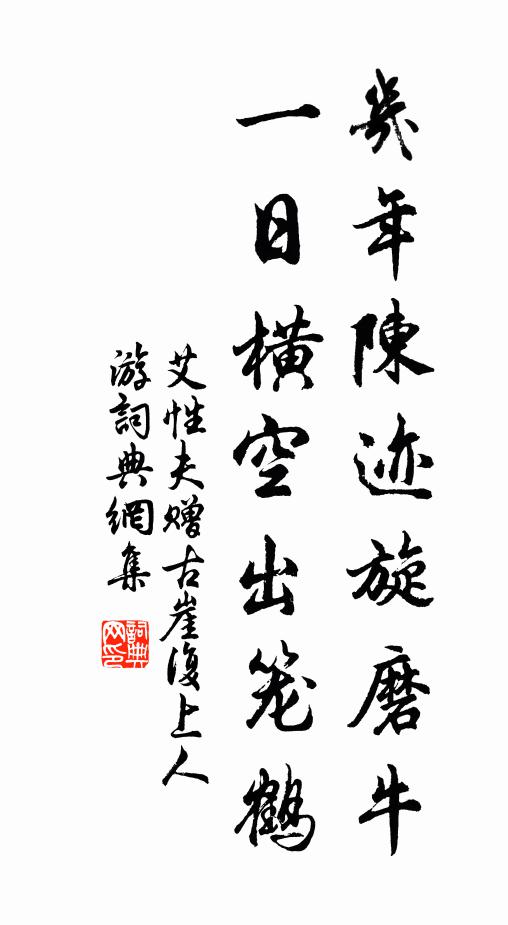 幾年陳迹旋磨牛
一日橫空出笼鶴
艾性夫赠古崖復上人
游詞典網集
詞典网印